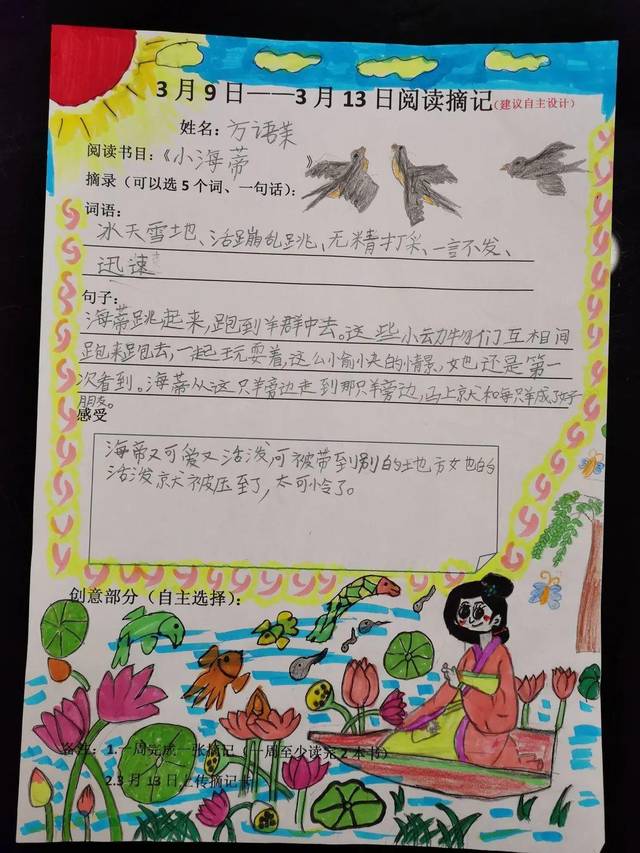 3月9日——3月13日阅读摘记(建议自主设计)
姓名：方语茉
阅读书目：《小海蒂 》
摘录（可以选5个词、一句话）：
词语：
冰天雪地、活蹦乱跳、无精打采、一言不发、
迅速
句子：
海蒂跳起来，跑到羊群中去。这些小动物们互相间
跑来跑去，一起玩耍着，这么愉快的情景，她还是第一
次看到。海蒂从这只羊旁边走到那只羊旁边，马上就和每只羊成了好
朋友。
感受
海蒂又可爱又活泼，可被带到别的地方她的
活泼就被压到了，太可怜了。
创意部分（自主选择）：
备注：1.一周完成一张摘记（一周至少读完2本书）
2.3月13日上传摘记